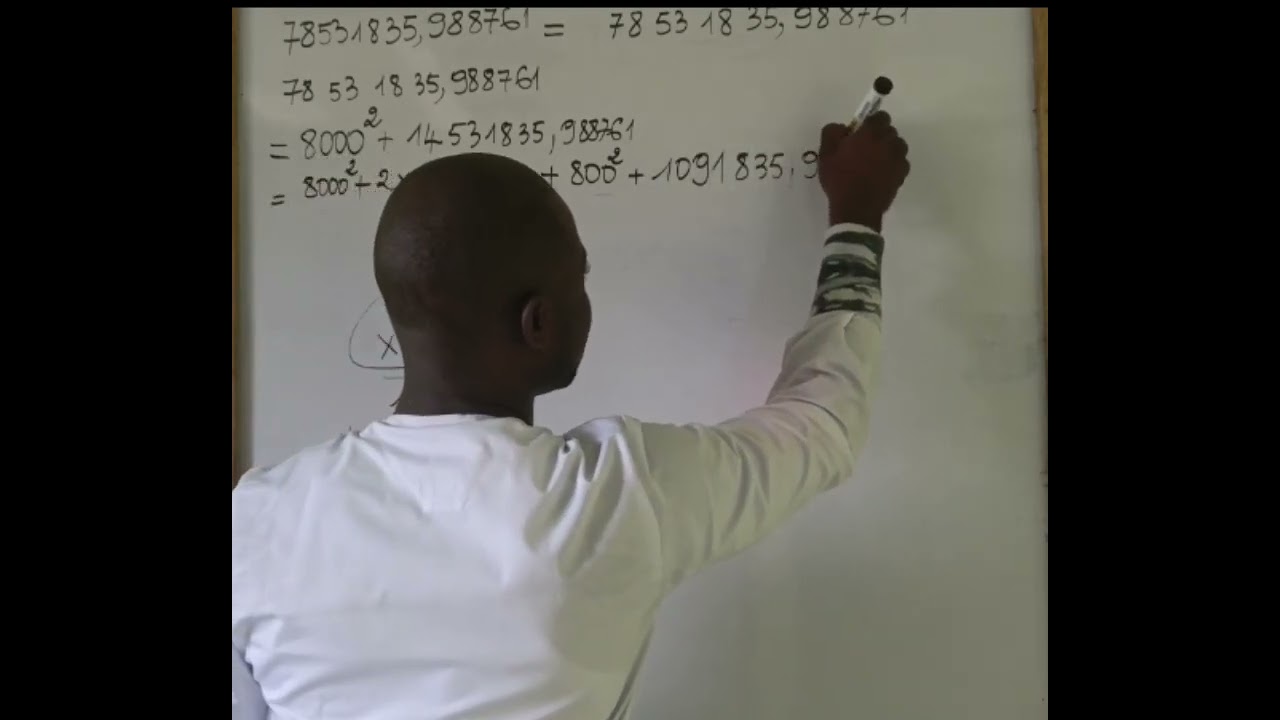 78531835,988761 = 78 53 18 35,988761
78 53 18 35,988761
= 8000² + 14531835,988761
= 8000² + 2x + 800² + 1091835,9
x